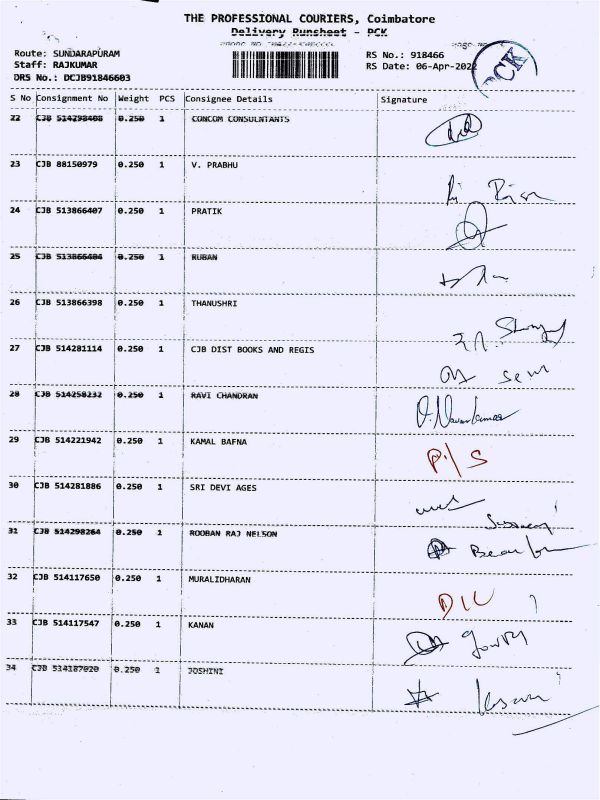 THE PROFESSIONAL COURIERS, Coimbatore
Delivery Runsheet - PCK
Route: SUNDARAPURAM
RS No.: 918466
Staff: RAJKUMAR
RS Date: 06-Apr-2022
DRS No.: DCJB91846603
PCK
S No Consignment No Weight PCS Consignee Details Signature
22 CJB 514298408 0.250 1 CONCOM CONSULNTANTS
23 CJB 88150979 0.250 1 V. PRABHU
24 CJB 513866407 0.250 1 PRATIK
25 CJB 513866404 0.250 1 RUBAN
26 CJB 513866398 0.250 1 THANUSHRI
27 CJB 514281114 0.250 1 CJB DIST BOOKS AND REGIS
28 CJB 514258232 0.250 1 RAVI CHANDRAN
29 CJB 514221942 0.250 1 KAMAL BAFNA P/S
30 CJB 514281886 0.250 1 SRI DEVI AGES
31 CJB 514298264 0.250 1 ROOBAN RAJ NELSON
32 CJB 514117650 0.250 1 MURALIDHARAN
33 CJB 514117547 0.250 1 KANAN
34 CJB 514187020 0.250 1 JOSHINI